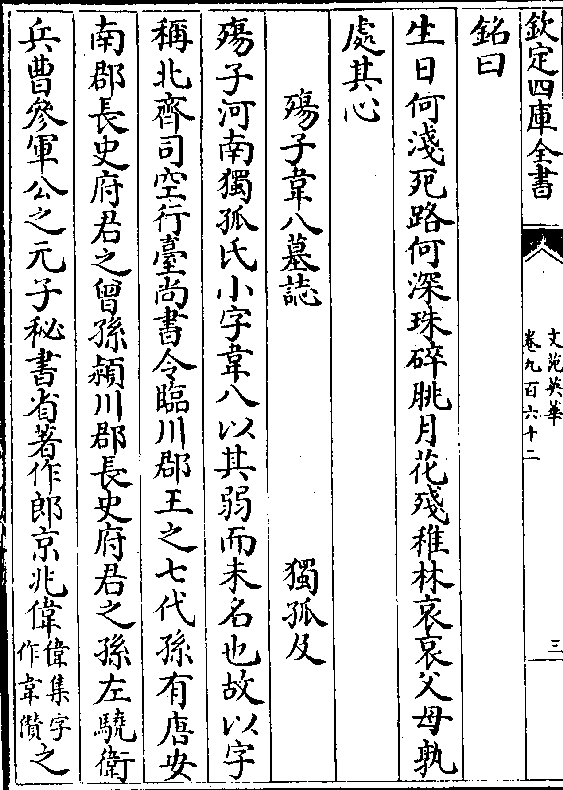 欽定四庫全書
文苑英華
卷九百六十二
三
銘曰
生日何淺死路何深珠碎朓月花殘稚林哀哀父母孰
處其心
殤子韋八墓誌
獨孤及
殤子河南獨孤氏小字韋八以其弱而未名也故以字
稱北齊司空行臺尚書令臨川郡王之七代孫有唐安
南郡長史府君之曾孫潁川郡長史府君之孫左驍衛
兵曹參軍公之元子秘書省著作郎京兆偉
偉集字
作韋儧
之